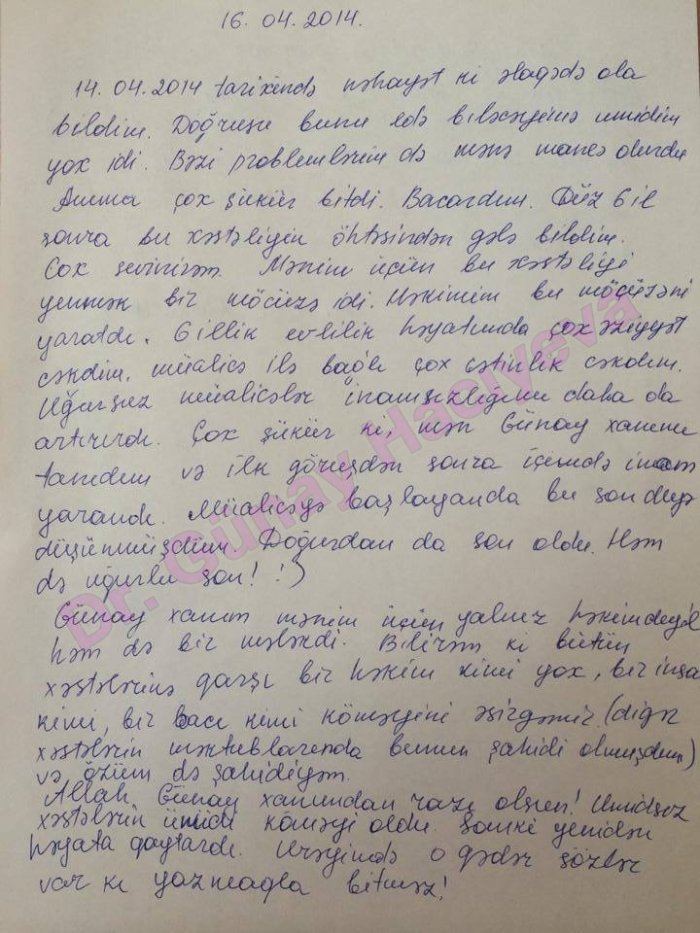 16. 04. 2014.
14. 04. 2014 tarixində nəhayət ki əlaqədə ola
bildim. Doğrusu bunu edə biləcəyimə ümidim
yox idi. Bəzi problemlərim də mənə mane olurdu
Amma çox şükür bitdi. Bacardım. Düz 6 il
sonra bu xəstəliyin öhtəsindən gələ bildim.
Çox sevinirəm. Mənim üçün bu xəstəliyi
yenmək bir möcüzə idi. Həkimim bu möcüzəni
yaratdı. 6 illik evlilik həyatımda çox əziyyət
çəkdim. müalicə ilə bağlı çox çətinlik çəkdim.
Uğursuz müalicələr inamsızlığımı daha da
artırırdı. Çox şükür ki, mən Günay xanımı
tanıdım və ilk görüşdən sonra içimdə inam
yarandı. Müalicəyə başlayanda bu son deyə
düşünmüşdüm. Doğurdan da son oldu. Həm
də uğurlu son! :)
Günay xanım mənim üçün yalnız həkim deyil
həm də bir mələkdi. Bilirəm ki bütün
xəstələrinə qarşı bir həkim kimi yox, bir insa
kimi, bir bacı kimi köməyini əsirgəmir. (digər
xəstələrin məktublarında bunun şahidi olmuşdum)
və özüm də şahidiyəm.
Allah Günay xanımdan razı olsun! Ümidsiz
xəstələrin ümidi köməyi oldu. Sanki yenidən
həyata qaytardı. Ürəyimdə o qədər sözlər
var ki yazmaqla bitməz!
Dr. Günay Hacıyeva